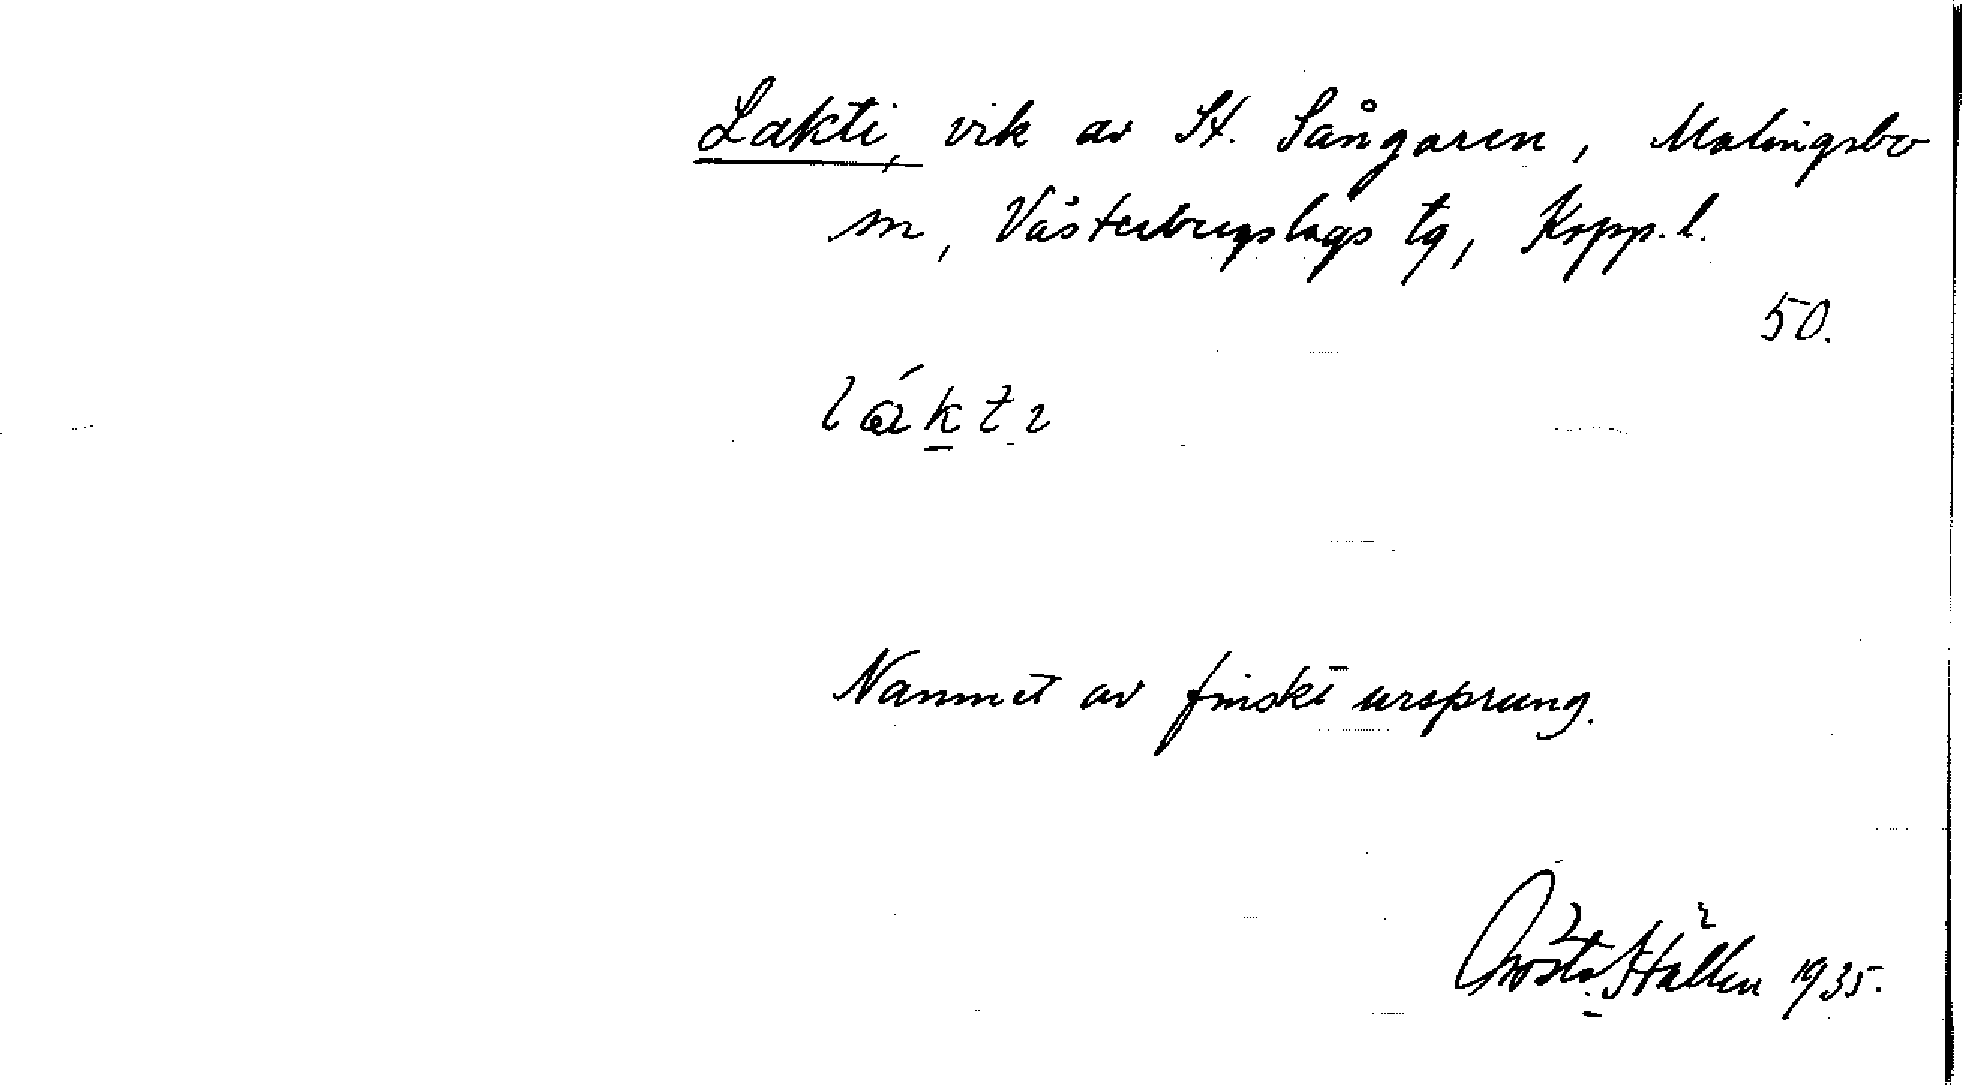 Lakti, vik av St. Sångaren, Malingsbo
sn, Västerbergslags tg, Kopp. l.
50.
lákti
Namnet av finskt ursprung.
Gösta Hällen 1935.